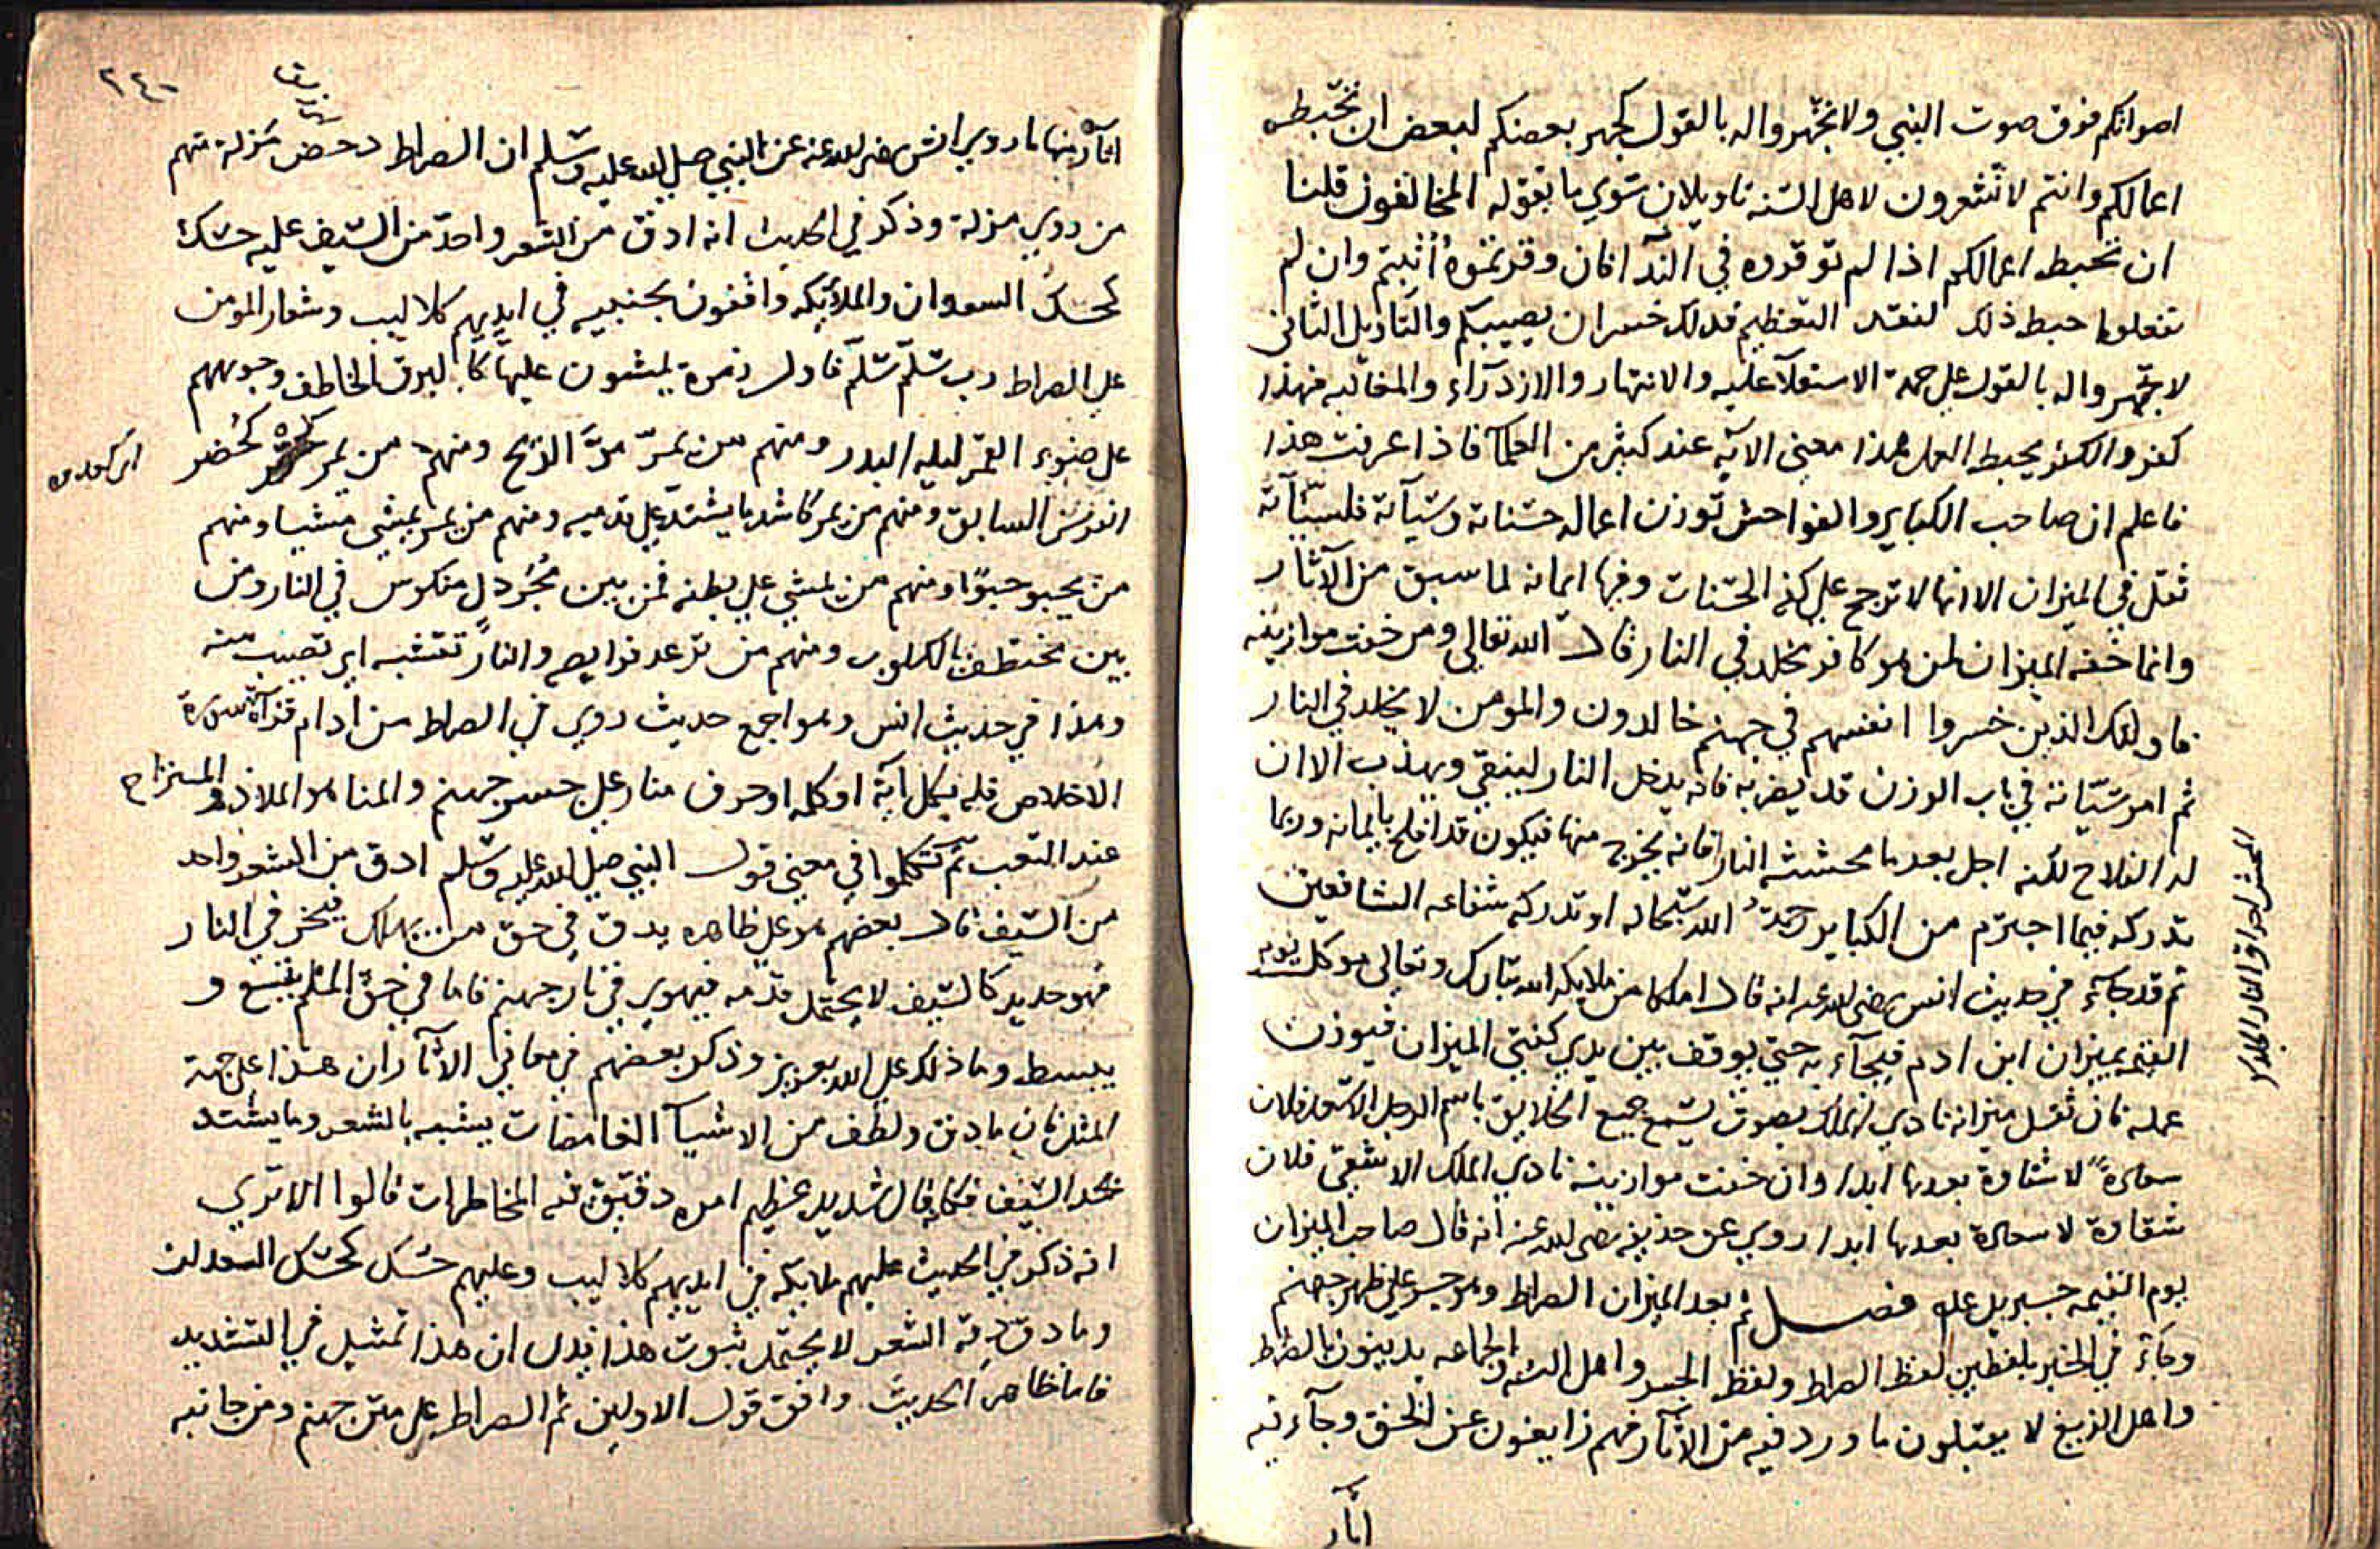 اصواتكم فوق صوت النبي ولا تجهروا له بالقول كجهر بعضكم لبعض ان تحبط
اعمالكم وانتم لا تشعرون لاهل السنه تاويلان سوي ما يقوله المخالفون قلنا
ان تحبط اعمالكم اذا لم توقروه في الندا فان وقرتموه اثبتم وان لم
تفعلوا حبط ذلك لفقد التعظيم فذلك خسران يصيبكم والتاويل الثاني
لا تجهروا له بالقول علي جهة الاستعلآ عليه والانتهار والازدرآء والمغالبه فهذا
كفر والكفر يحبط العمل هذا معني الآيه عند كثير من العلمآ فاذا عرفت هذا
فاعلم ان صاحب الكباير والفواحش توزن اعماله حسناته وسيآته فلسيآته
ثقل في الميزان الا انها لا ترجح علي كفه الحسنات وفيها ايمانه لما سبق من الآثار
وانما خفه الميزان لمن هو كافر يخلد في النار قال الله تعالي ومن خفت موازينه
فاولئك الذين خسروا انفسهم في جهنم خالدون والمومن لا يخلد في النار
ثم امر سيّاته في باب الوزن قد يضر به فانه يدخل النار لينقي ويهذب الا ان
له الفلاح لكنه اجل بعد ما محشته النار فانه يخرج منها فيكون قد افلح بايمانه وربما
تدركه فيما اجترم من الكباير رحمة الله سبحانه او تدركه شفاعه الشافعين
ثم قد جآء في حديث انس رضي الله عنه انه قال ان ملكا من ملايكه الله تبارك وتعالي موكل يوم
القيمه بميزان ابن ادم فيجآء به حتي يوقف بين يدي كفتي الميزان فيوزن
عمله فان ثقل ميزانه نادي الملك بصوت يسمع جميع الخلايق باسم الرجل الا سعد فلان
سعادة لا شقاوة بعدها ابدا وان خفت موازينه نادي الملك الا شقي فلان
شقاوة لا سعادة بعدها ابدا روي عن حذيفه رضي الله عنه انه قال صاحب الميزان
يوم القيمه جبريل علم فصل ثم بعد الميزان الصراط وهو جسر علي ظهر جهنم
وجآء في الخبر بلفظين لفظ الصراط ولفظ الجسر واهل السنه والجماعه يدينون بالصراط
واهل الزيغ لا يقبلون ما ورد فيه من الآثار فهم زايغون عن الحق وجآء فيه
اثار
المحش احراق النار الجلد
٢٤٠
اثار منها ما روي انس رضي الله عنه عن النبي صلي الله عليه وسلم ان الصراط دحض مزلة منهم
من روي مزلة وذكر في الحديث انه ادق من الشعر واحدّ من السيف عليه حسك
كحسك السعدان والملآئكه واقفون بجنبيه في ايديهم كلاليب وشعار المومن
علي الصراط رب سلّم سلّم فاول زمرة يمشون عليها كالبرق الخاطف وجوههم
علي ضوء القمر ليله البدر ومنهم من يمرّ مرّ الريح ومنهم من يمر كحُضر
الفرس السابق ومنهم من يمر كاشد ما يشتد علي قدميه ومنهم من يمر يمشي مشيا ومنهم
من يحبو حبوًا ومنهم من يمشي علي بطنه فمن بين مُجَردلٍ منكوس في النار ومن
بين مختطف بالكلوب ومنهم من ترعد فرايصه والنار تقشبه اي تصيب منه
وهذا في حديث انس وهو اجمع حديث روي في الصراط من ادام قرآة سورة
الاخلاص فله بكل آية او كلمه او حرف منار علي جسر جهنم والمنار هو الملاذ والمستراح
عند التعب ثم تكلموا في معني قول النبي صلي الله عليه وسلم ادق من الشعر واحد
من السيف قال بعضهم هو علي ظاهره يدق في حق من يهلك فيخر في النار
فهو حديد كالسيف لا يحتمل قدمه فيهوي في نار جهنم فاما في حق المسلم يتسع و
يبسط وما ذلك علي الله بعزيز وذكر بعضهم في معاني الآثار ان هذا علي جهة
المثل فان ما دق ولطف من الاشيآ الغامضات يشبه بالشعر وما يشتد
بحد السيف فكانه قال شديد عظيم امره دقيق فيه المخاطرات قالوا الا تري
انه ذكر في الحديث عليهم ملايكه في ايديهم كلاليب وعليهم حسك كحسك السعدان
وما دق دقة الشعر لا يحتمل ثبوت هذا فدل ان هذا تمثيل في التشديد
فاما ظاهر الحديث وافق قول الاولين ثم الصراط علي متن جهنم ومن جانبه